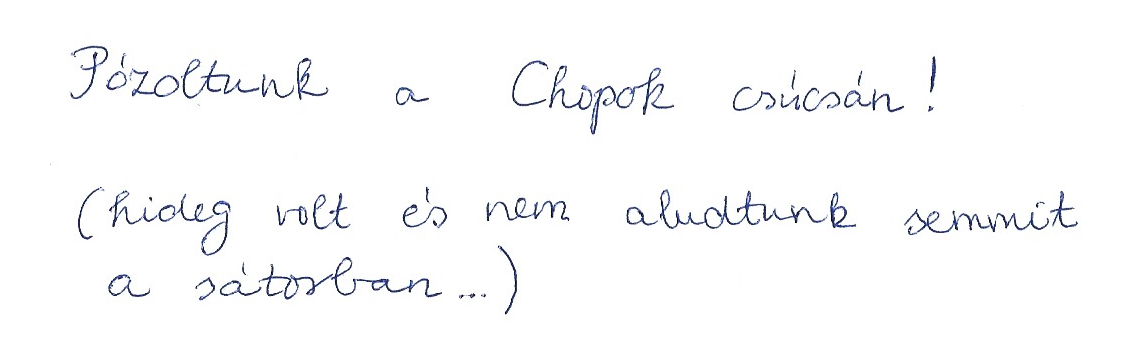 Pózoltunk a Chopok csúcsán!
(hideg volt és nem aludtunk semmit
a sátorban...)